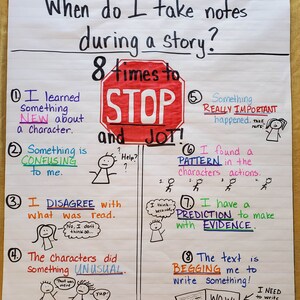 When do I take notes
during a story?
8 times to
STOP
and JOT!
① I learned
something
NEW about
a character.
② Something is
CONFUSING
to me.
Help?
?
③ I DISAGREE with
what was read.
No, I don't
④ The characters did
something UNUSUAL.
⑤ Something
REALLY IMPORTANT
happened.
TAKE
NOTE!
⑥ I found a
PATTERN in the
characters actions.
⑦ I have a
PREDICTION to make
with EVIDENCE.
I think
⑧ The text is
BEGGING me to
write something!
WOW!
I NEED
to write